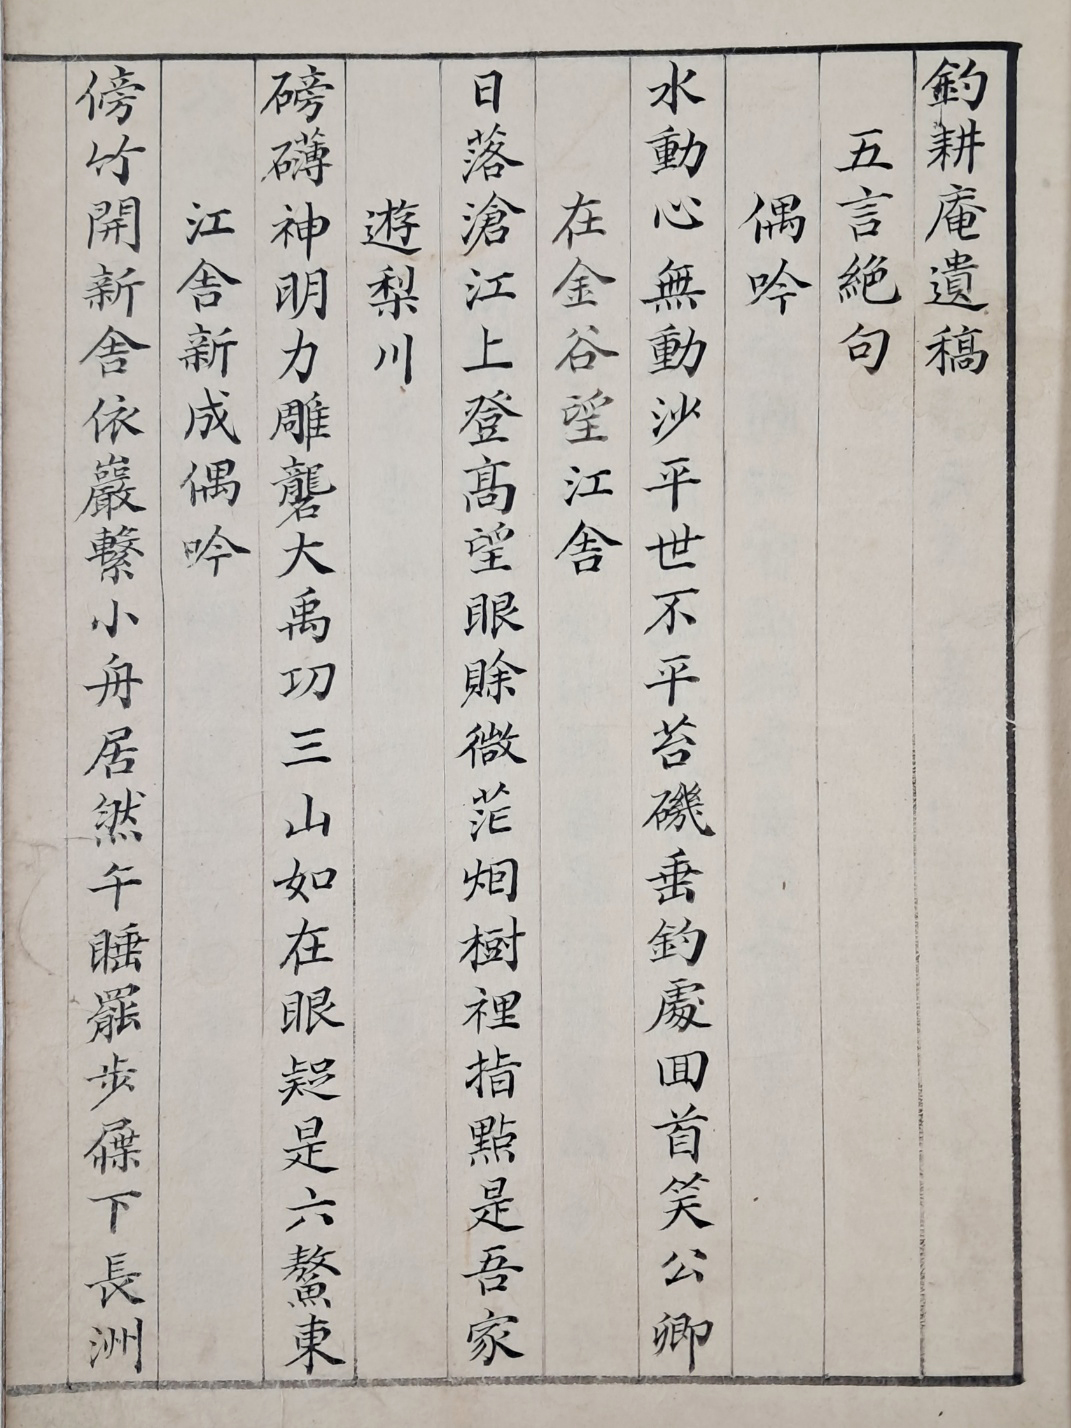 釣耕庵遺稿
五言絶句
偶吟
水動心無動沙平世不平苔磯垂釣處回首笑公卿
在金谷望江舍
日落滄江上登高望眼賖微茫烟樹裡指點是吾家
遊梨川
磅礴神明力雕礱大禹功三山如在眼疑是六鰲東
江舍新成偶吟
傍竹開新舍依巖繫小舟居然午睡罷步屧下長洲